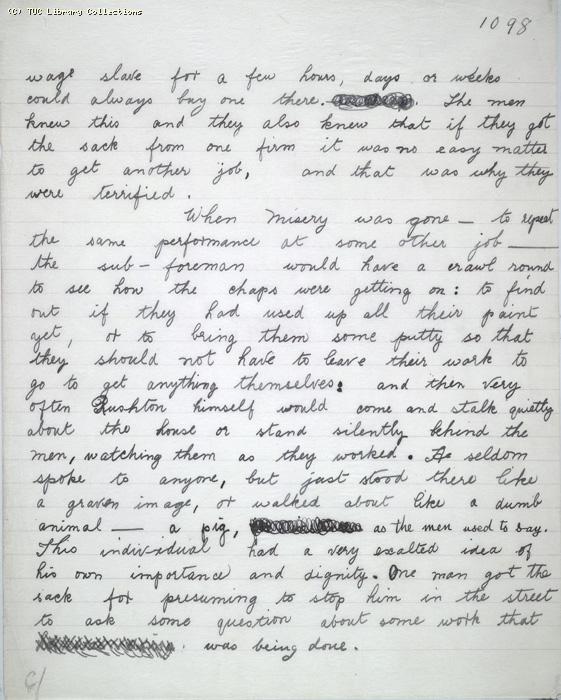 (C) TUC Library Collections
1098
wage slave for a few hours, days or weeks
could always buy one there. The men
knew this and they also knew that if they got
the sack from one firm it was no easy matter
to get another job, and that was why they
were terrified.
When Misery was gone — to repeat
the same performance at some other job —
the sub-foreman would have a crawl round
to see how the chaps were getting on: to find
out if they had used up all their paint
yet, or to bring them some putty so that
they should not have to leave their work to
go to get anything themselves: and then very
often Rushton himself would come and stalk quietly
about the house or stand silently behind the
men, watching them as they worked. He seldom
spoke to anyone, but just stood there like
a graven image, or walked about like a dumb
animal — a pig, as the men used to say.
This individual had a very exalted idea of
his own importance and dignity. One man got the
sack for presuming to stop him in the street
to ask some question about some work that
was being done.